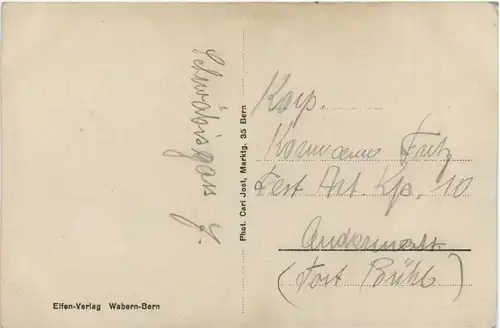 Schwäbisgass 7.
Phot. Carl Jost, Marktg. 35 Bern
Korp.
Fritz
Fest Art. Kp. 10
Andermatt
(Fort Brühl)
Elfen-Verlag Wabern-Bern